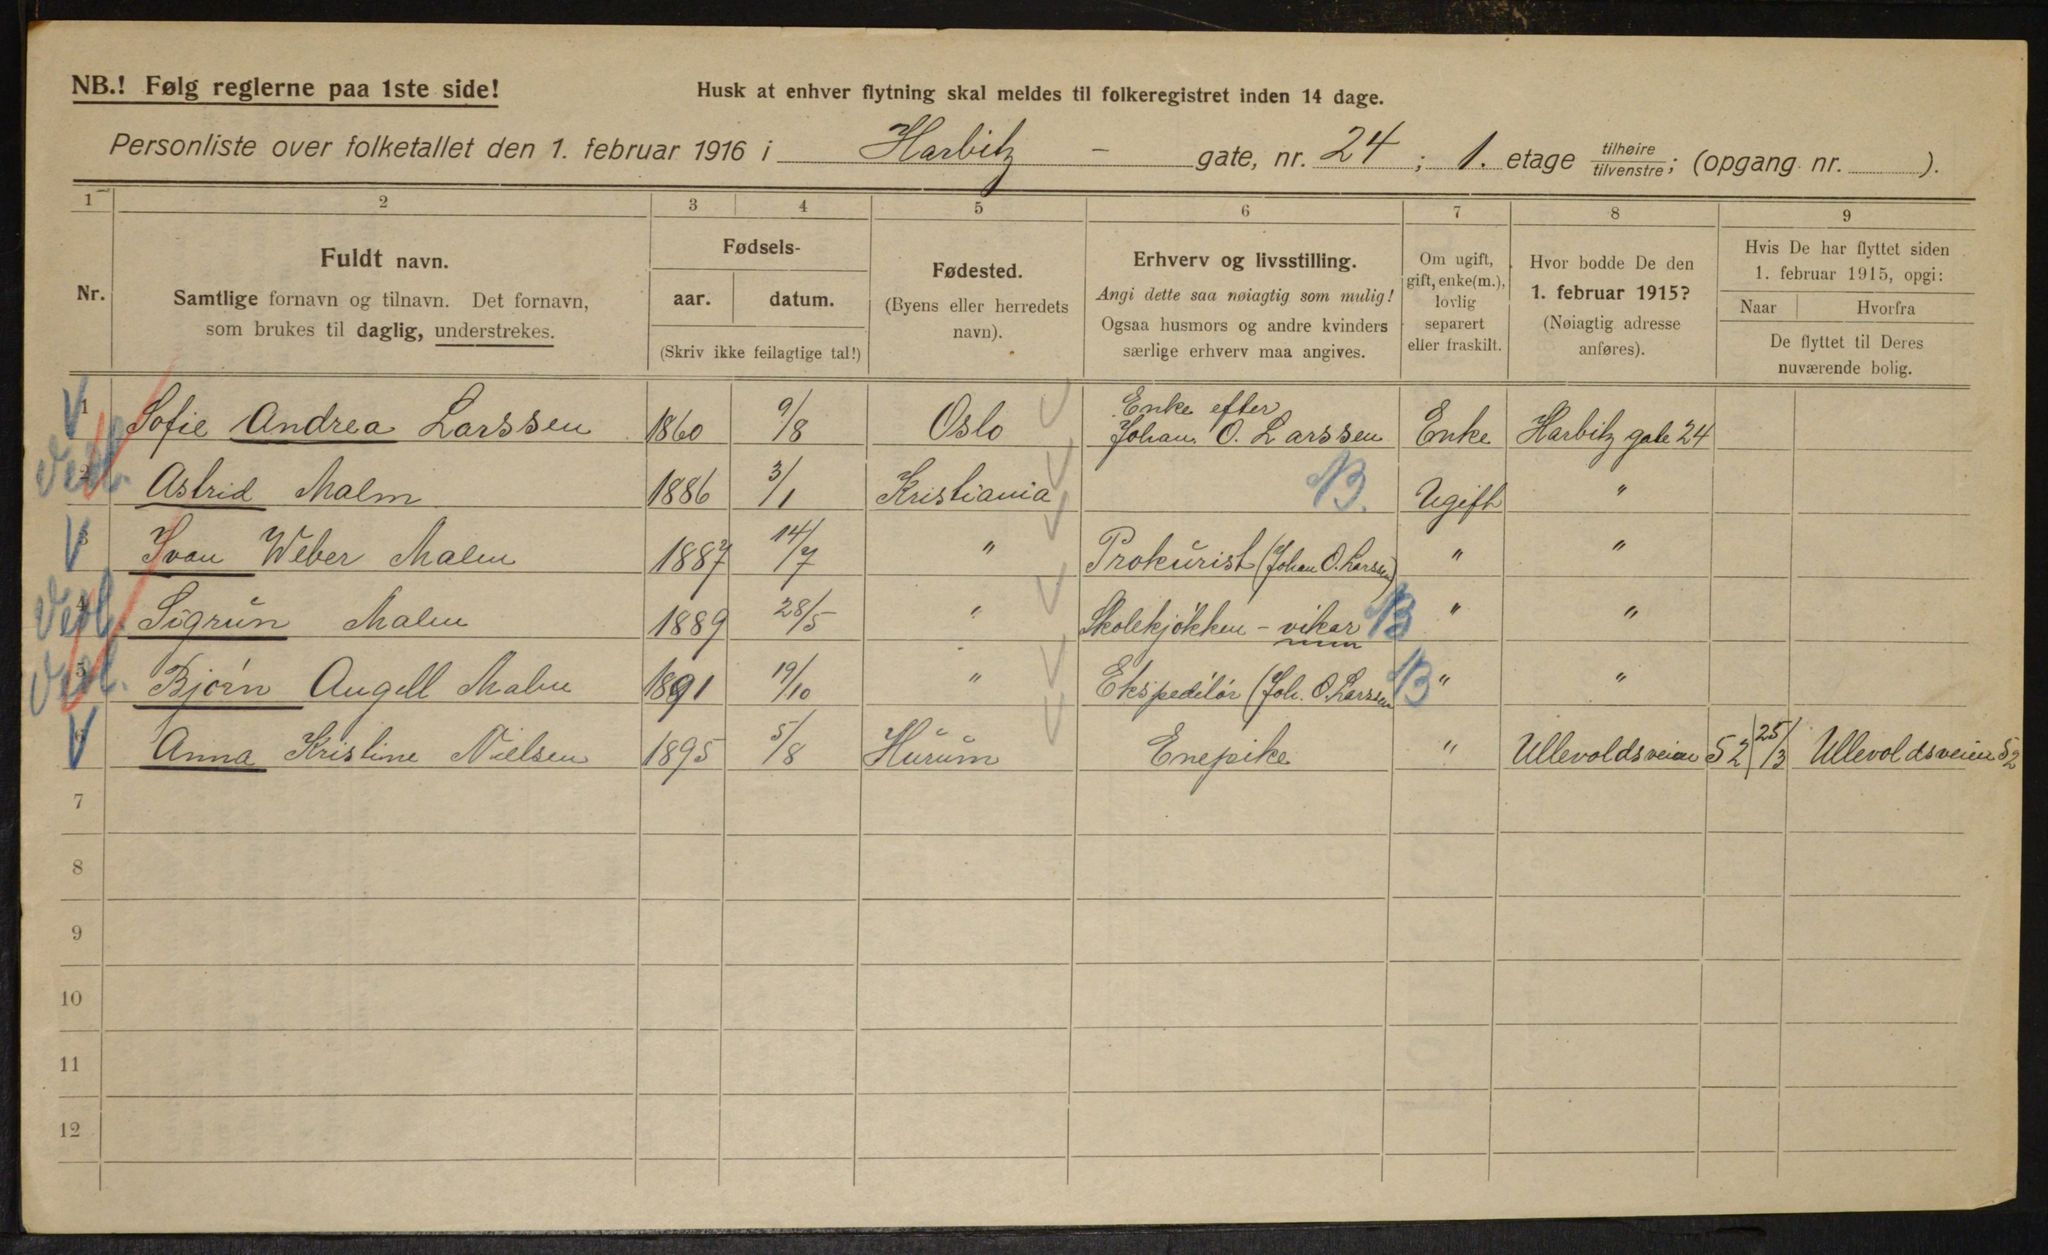 NB.! Følg reglerne paa 1ste side!
Husk at enhver flytning skal meldes til folkeregistret inden 14 dage.
Personliste over folketallet den 1. februar 1916 i Harbitz - gate, nr. 24; 1. etage tilhøire/tilvenstre; (opgang nr. ).
1 2 3 4 5 6 7 8 9
Nr.
Fuldt navn.
Samtlige fornavn og tilnavn. Det fornavn,
som brukes til daglig, understrekes.
Fødsels-
aar. datum.
(Skriv ikke feilagtige tal!)
Fødested.
(Byens eller herredets
navn).
Erhverv og livsstilling.
Angi dette saa nøiagtig som mulig!
Ogsaa husmors og andre kvinders
særlige erhverv maa angives.
Om ugift,
gift, enke(m.),
lovlig
separert
eller fraskilt.
Hvor bodde De den
1. februar 1915?
(Nøiagtig adresse
anføres).
Hvis De har flyttet siden
1. februar 1915, opgi:
Naar Hvorfra
De flyttet til Deres
nuværende bolig.
V 1 Sofie Andrea Larssen 1860 9/8 Oslo Enke efter
Johan O. Larssen Enke Harbitz gate 24
2 Astrid Malm 1886 3/1 Kristiania B. Ugift "
V 3 Ivan Weber Malm 1887 14/7 " Prokurist (Johan O. Larssen) " "
4 Sigrun Malm 1889 28/5 " Skolekjøkken - vikar B " "
5 Bjørn Angell Malm 1891 19/10 " Ekspeditør (Joh. O. Larssen B " "
V 6 Anna Kristine Nielsen 1895 5/8 Hurum Enepike " Ullevoldsveien 52 25/3 Ullevoldsveien 52
7
8
9
10
11
12